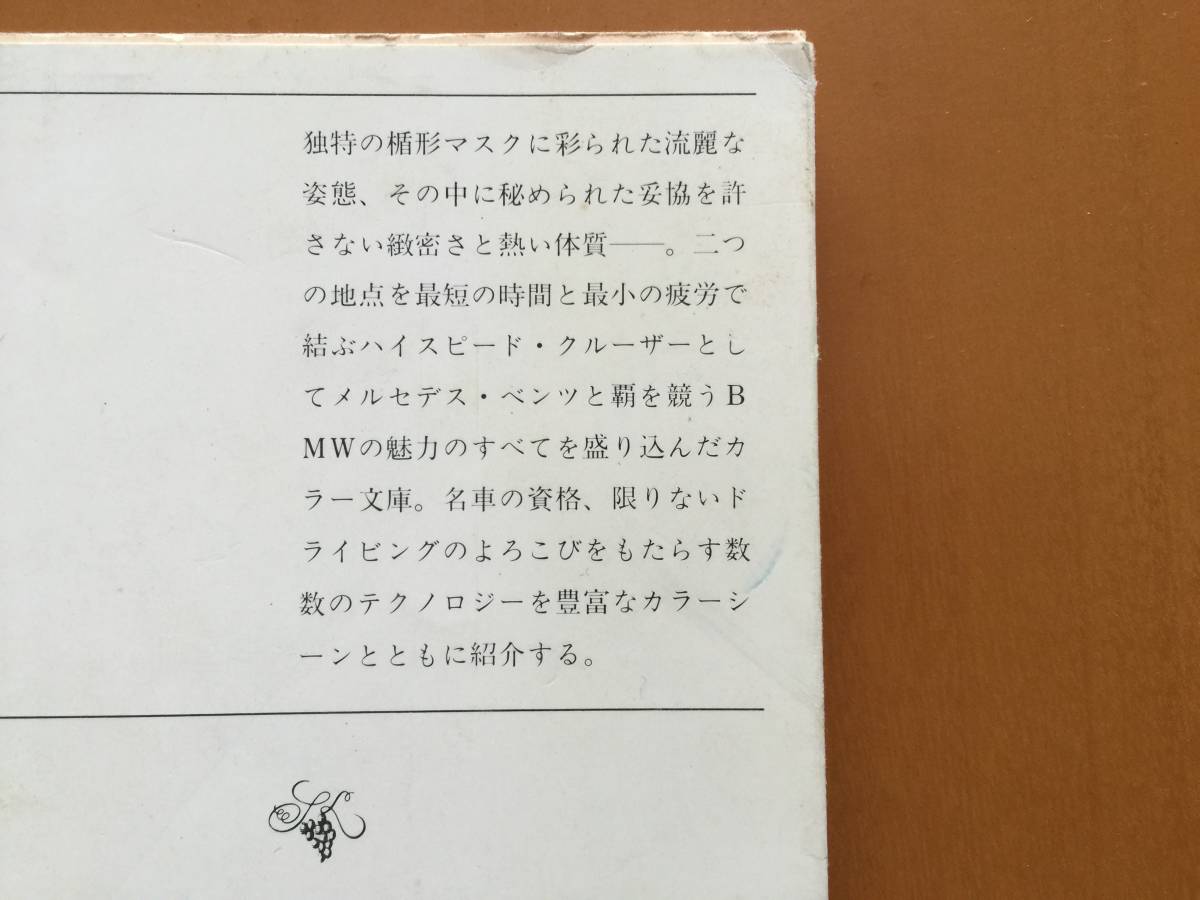 独特の楯形マスクに彩られた流麗な
姿態、その中に秘められた妥協を許
さない緻密さと熱い体質――。二つ
の地点を最短の時間と最小の疲労で
結ぶハイスピード・クルーザーとし
てメルセデス・ベンツと覇を競うB
MWの魅力のすべてを盛り込んだカ
ラー文庫。名車の資格、限りないド
ライビングのよろこびをもたらす数
数のテクノロジーを豊富なカラーシ
ーンとともに紹介する。
SK